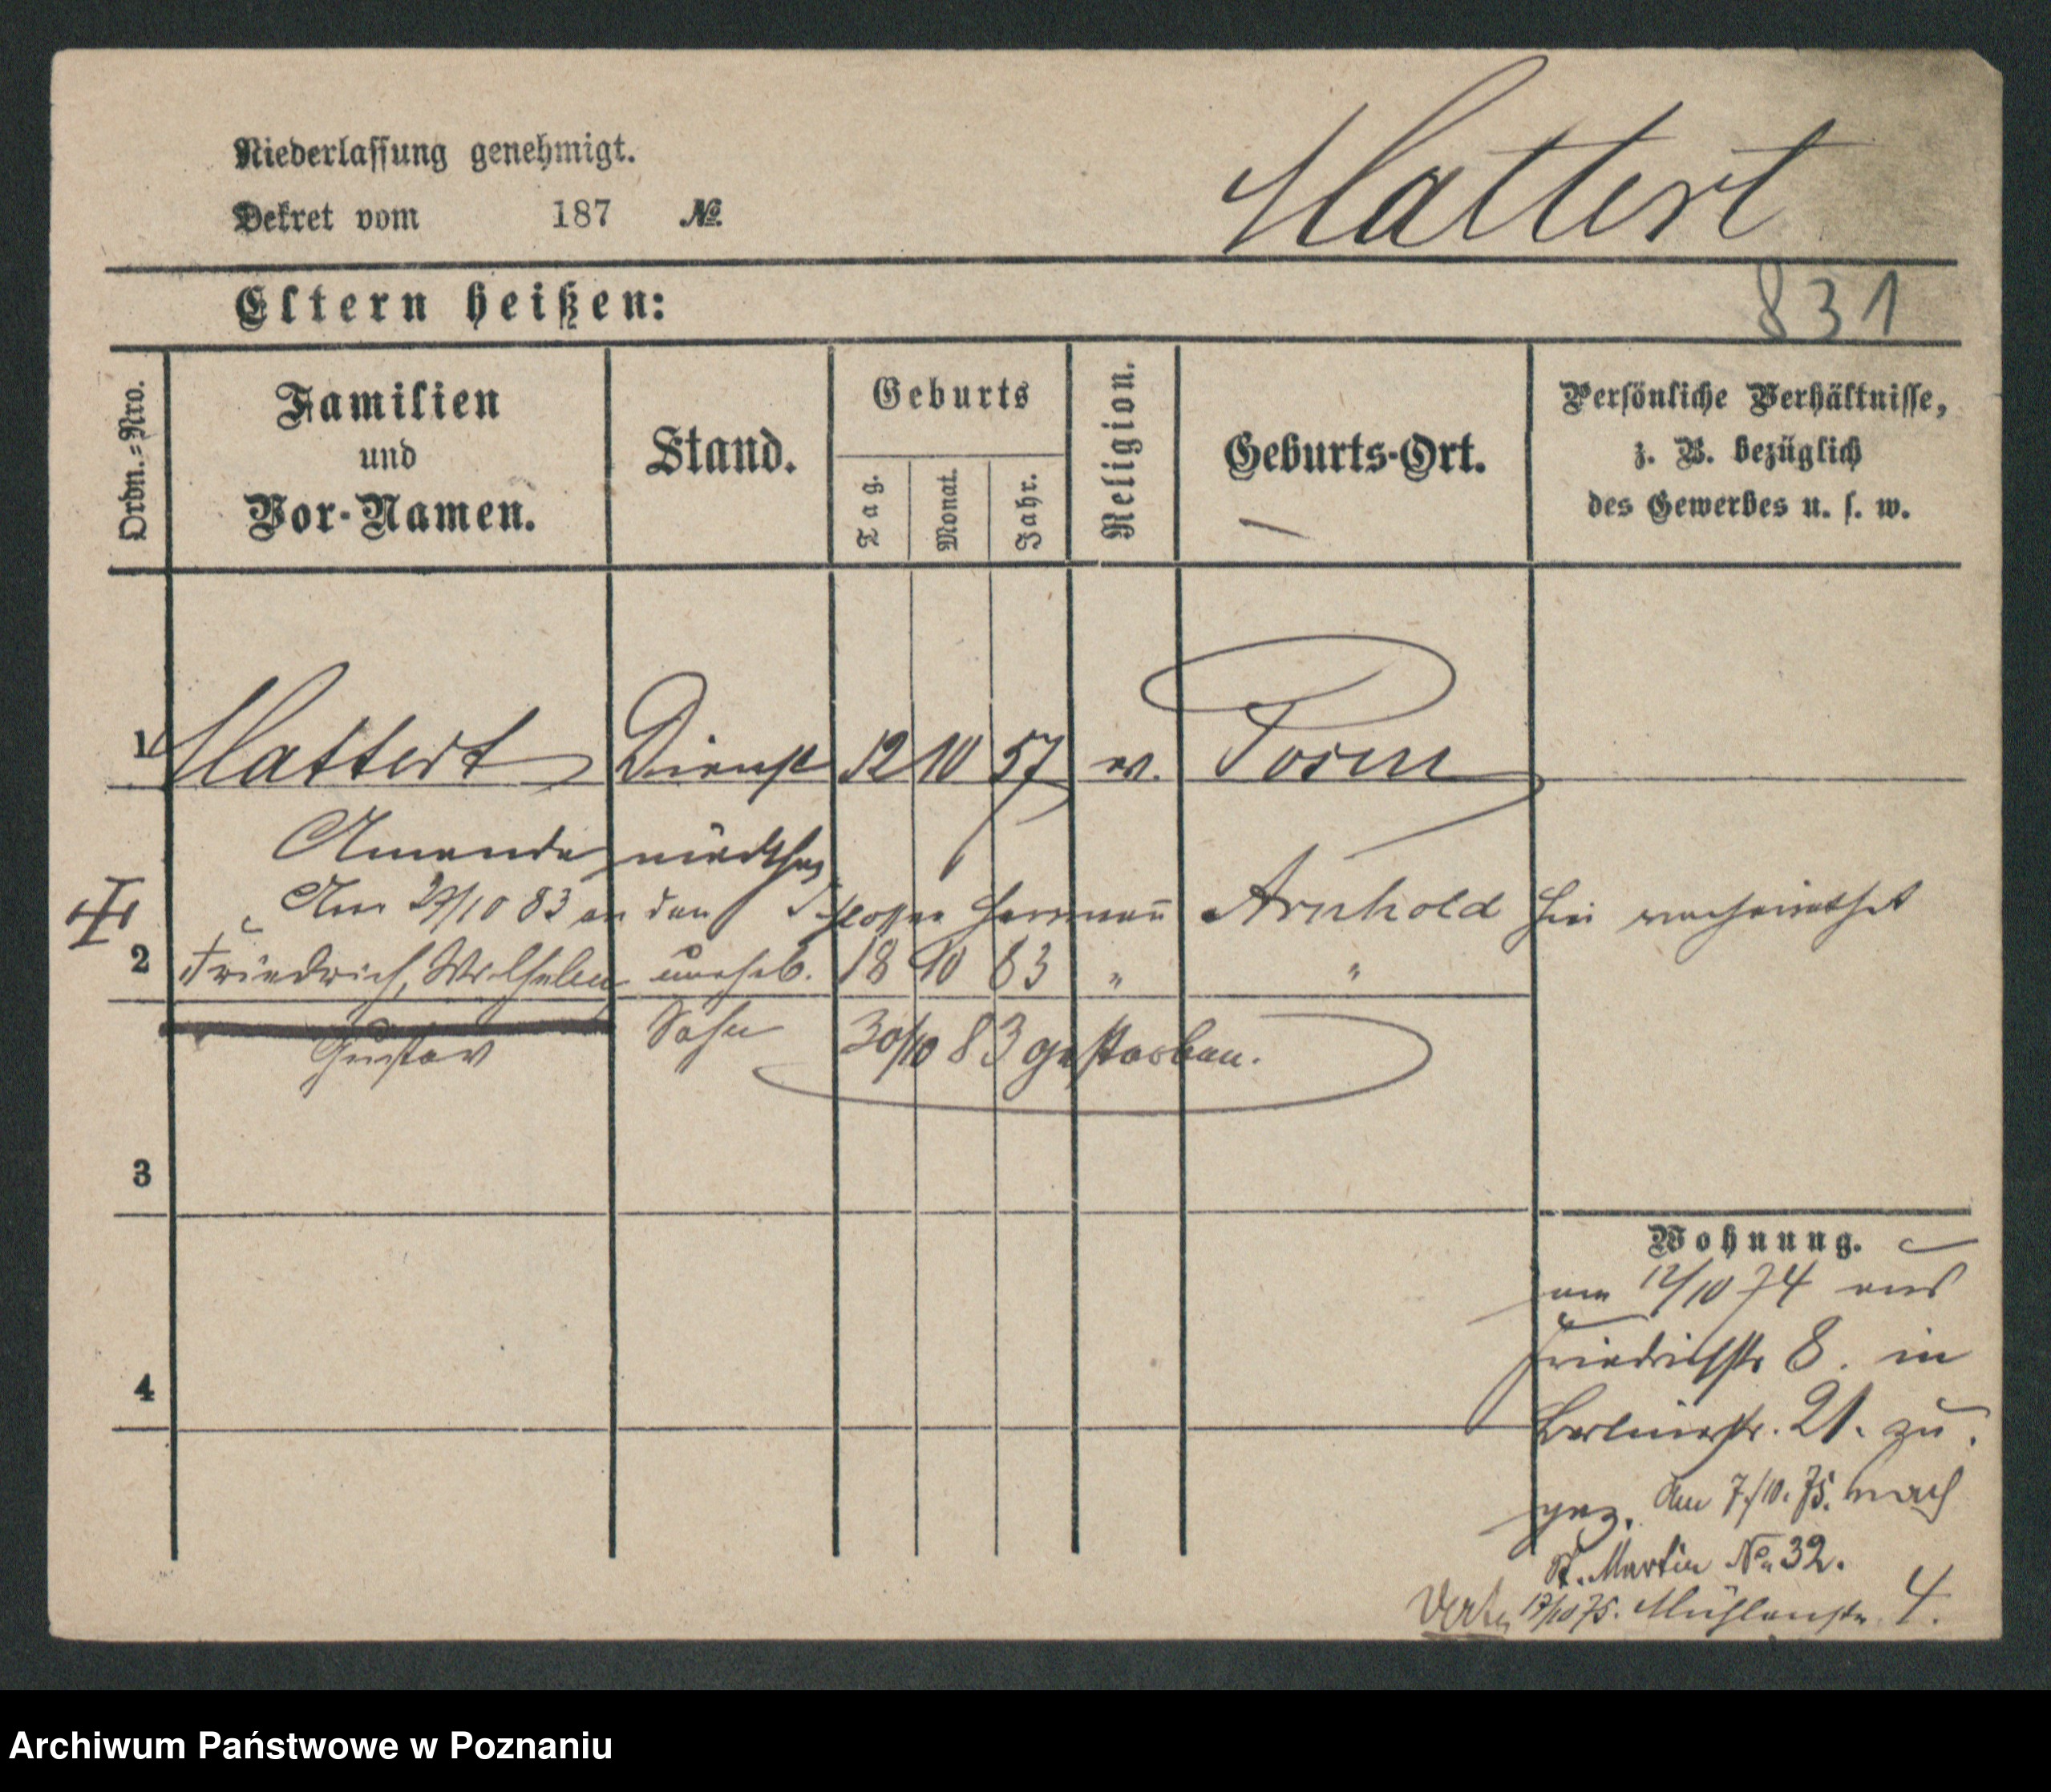 Niederlassung genehmigt.
Hattert
Dekret vom 187 №
Eltern heißen:
831
Ordn.-Nro.
Familien
und
Vor-Namen.
Stand.
Geburts
Tag.
Monat.
Jahr.
Religion.
Geburts-Ort.
Persönliche Verhältnisse,
z. B. bezüglich
des Gewerbes u. s. w.
1 Hattert Dienst 12 10 57 ev. Posen
Amanda mädchen
Am 29/10 83 an den Schlosser Herrmann Arnhold hier verheirathet
2 Friedrich, Wilhelm unehel. 18 10 83 " "
Gustav Sohn 30/10 83 gestorben.
3
Wohnung.
am 12/10 74 aus
Friedrichstr 8. in
4
Berlinerstr. 21. zu
gez. Am 7/10. 75. nach
St. Martin No 32.
Verte 17/10 75. Mühlenstr 4.
Archiwum Państwowe w Poznaniu